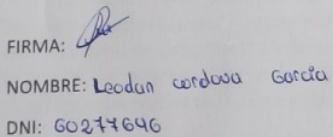 FIRMA:
NOMBRE: Leodan cordova Garcia
DNI: 60277646